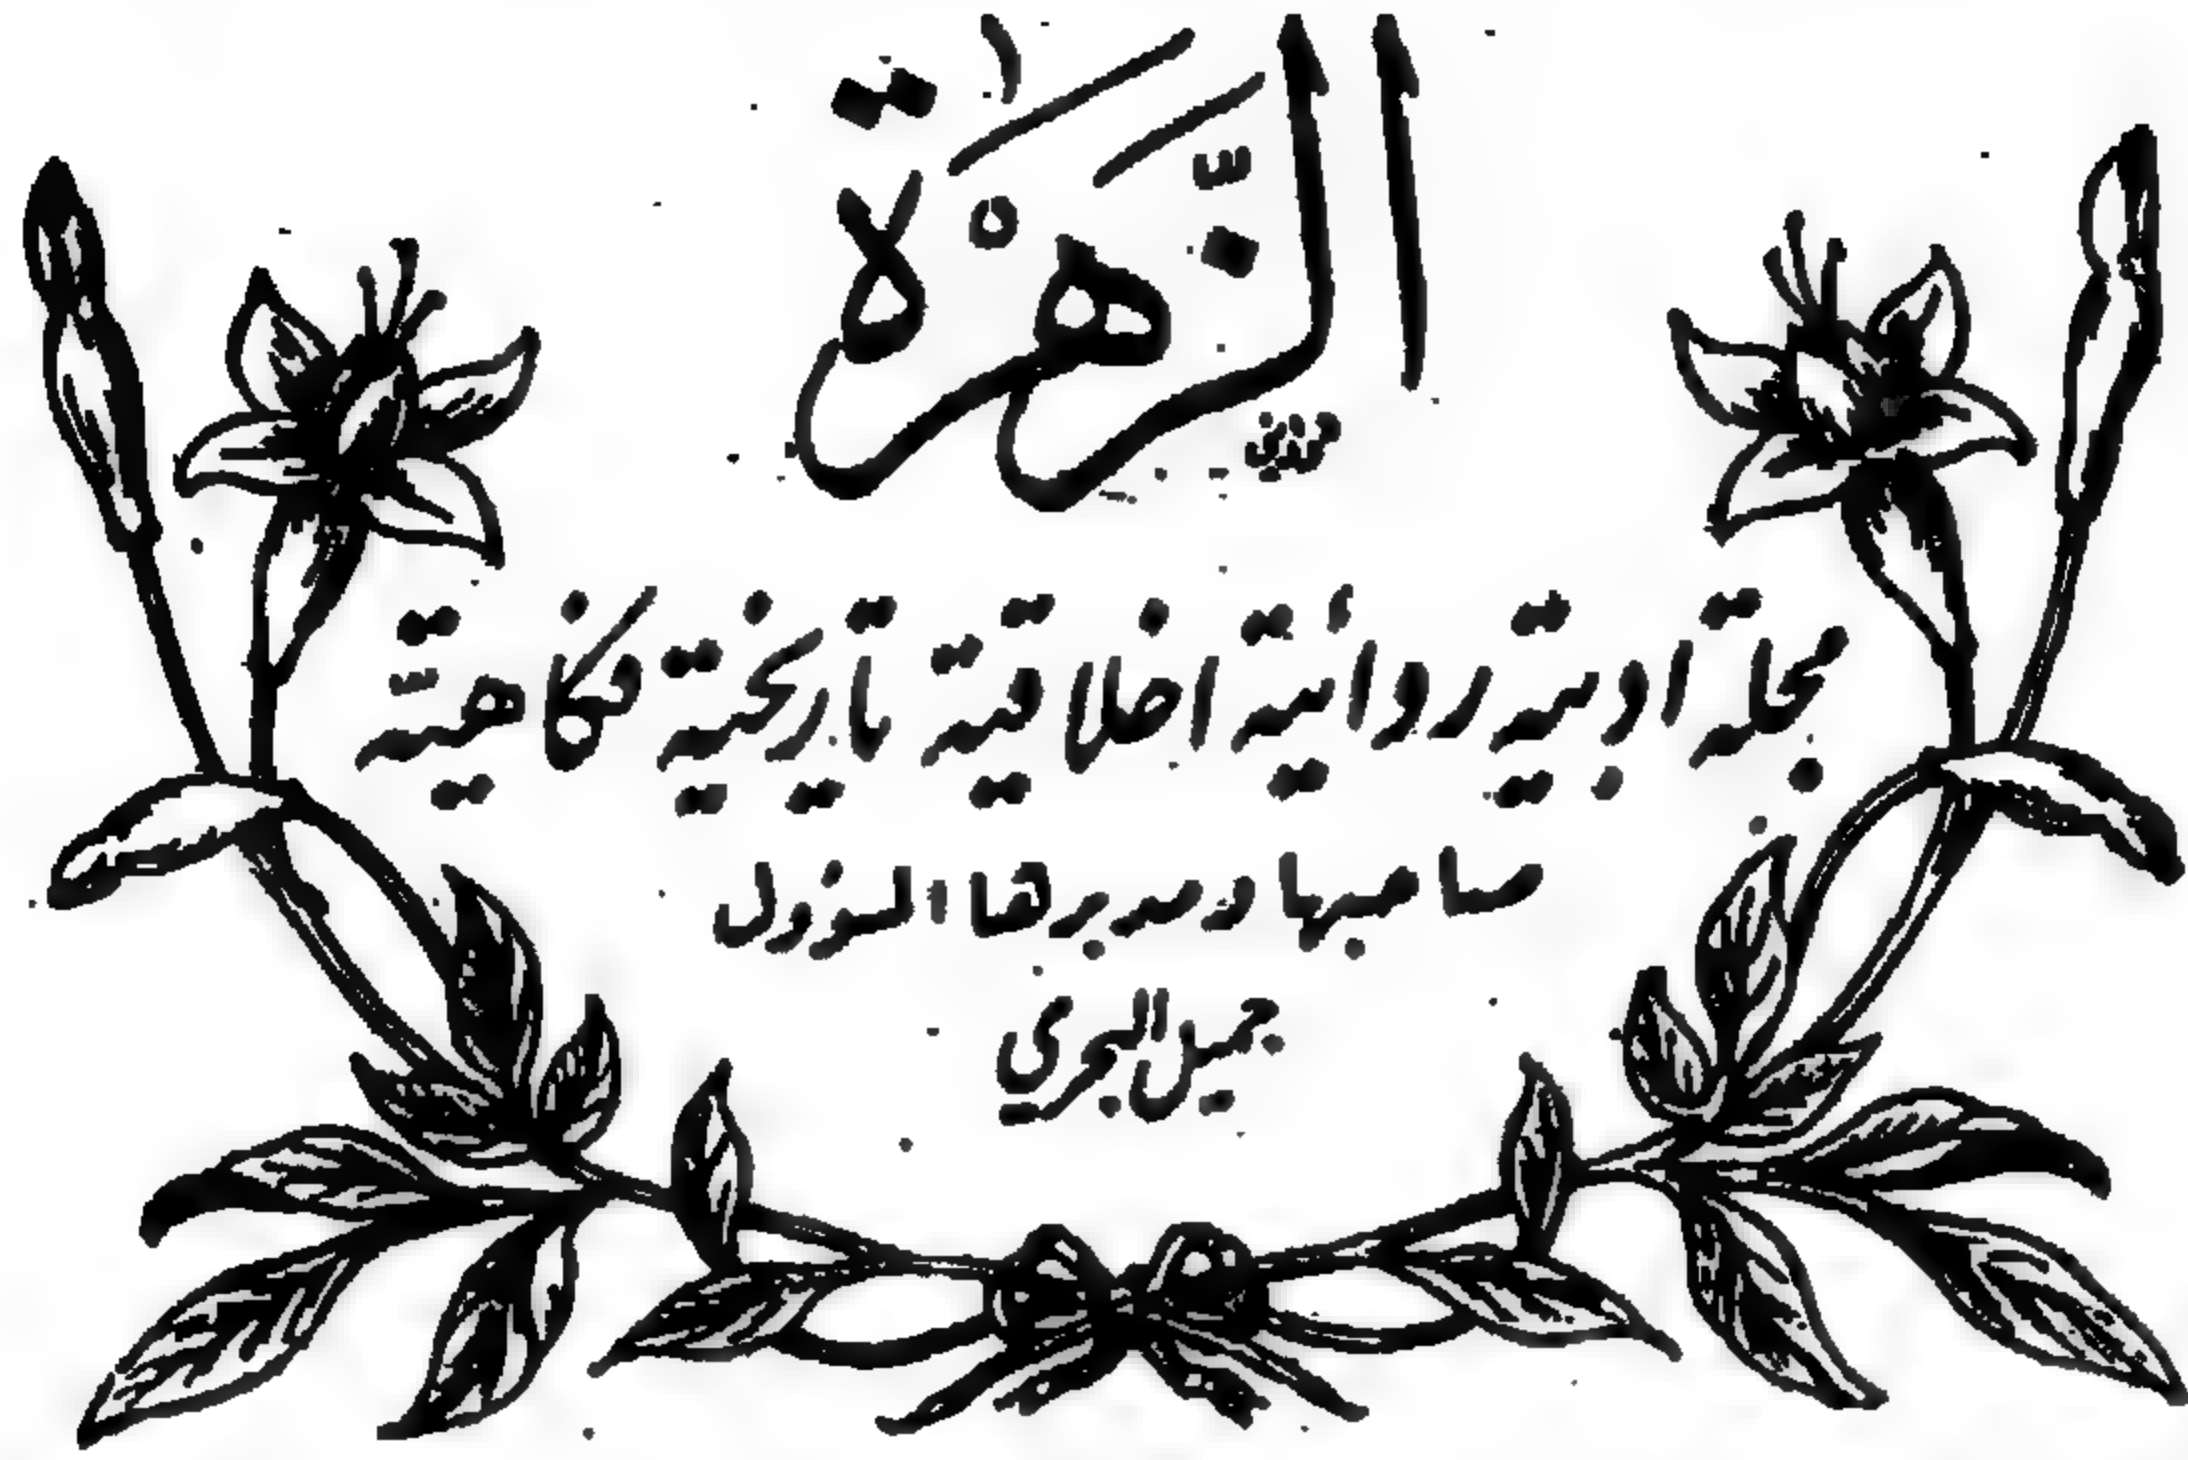 الزَّهْرَة
مجلة ادبية روأئية اخلاقية تاريخية فكاهيّة
صاحبها ومديرها المسؤول
جميل البحري